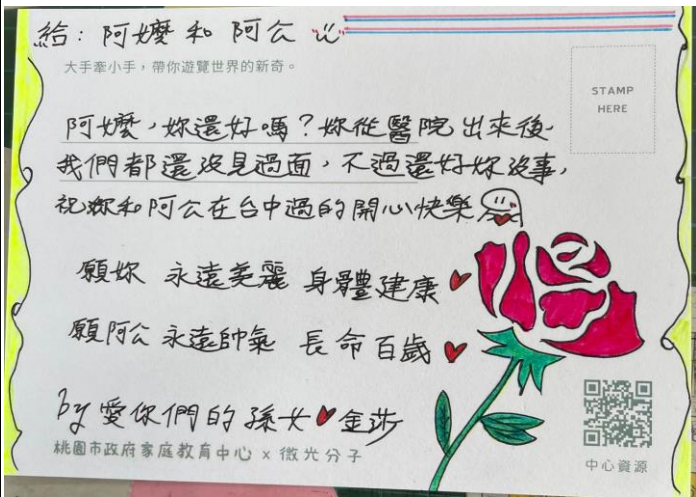 給：阿嬤和阿公
大手牽小手，帶你遊覽世界的新奇。
STAMP
HERE
阿嬤，妳還好嗎？妳從醫院出來後，
我們都還沒見過面，不過還好妳沒事，
祝妳和阿公在台中過的開心快樂
願妳 永遠美麗 身體建康
願阿公 永遠帥氣 長命百歲
by 愛你們的孫女 金莎
桃園市政府家庭教育中心 x 微光分子
中心資源